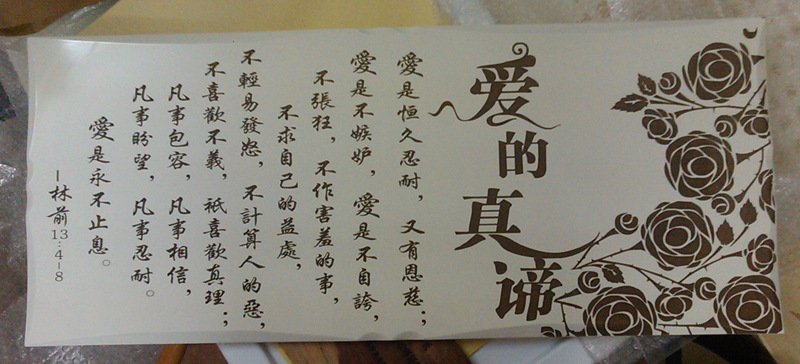 爱的真谛
愛是恒久忍耐，又有恩慈；
愛是不嫉妒，愛是不自誇，
不張狂，不作害羞的事，
不求自己的益處，
不輕易發怒，不計算人的惡，
不喜歡不義，祇喜歡真理；
凡事包容，凡事相信，
凡事盼望，凡事忍耐。
愛是永不止息。
–林前13:4–8